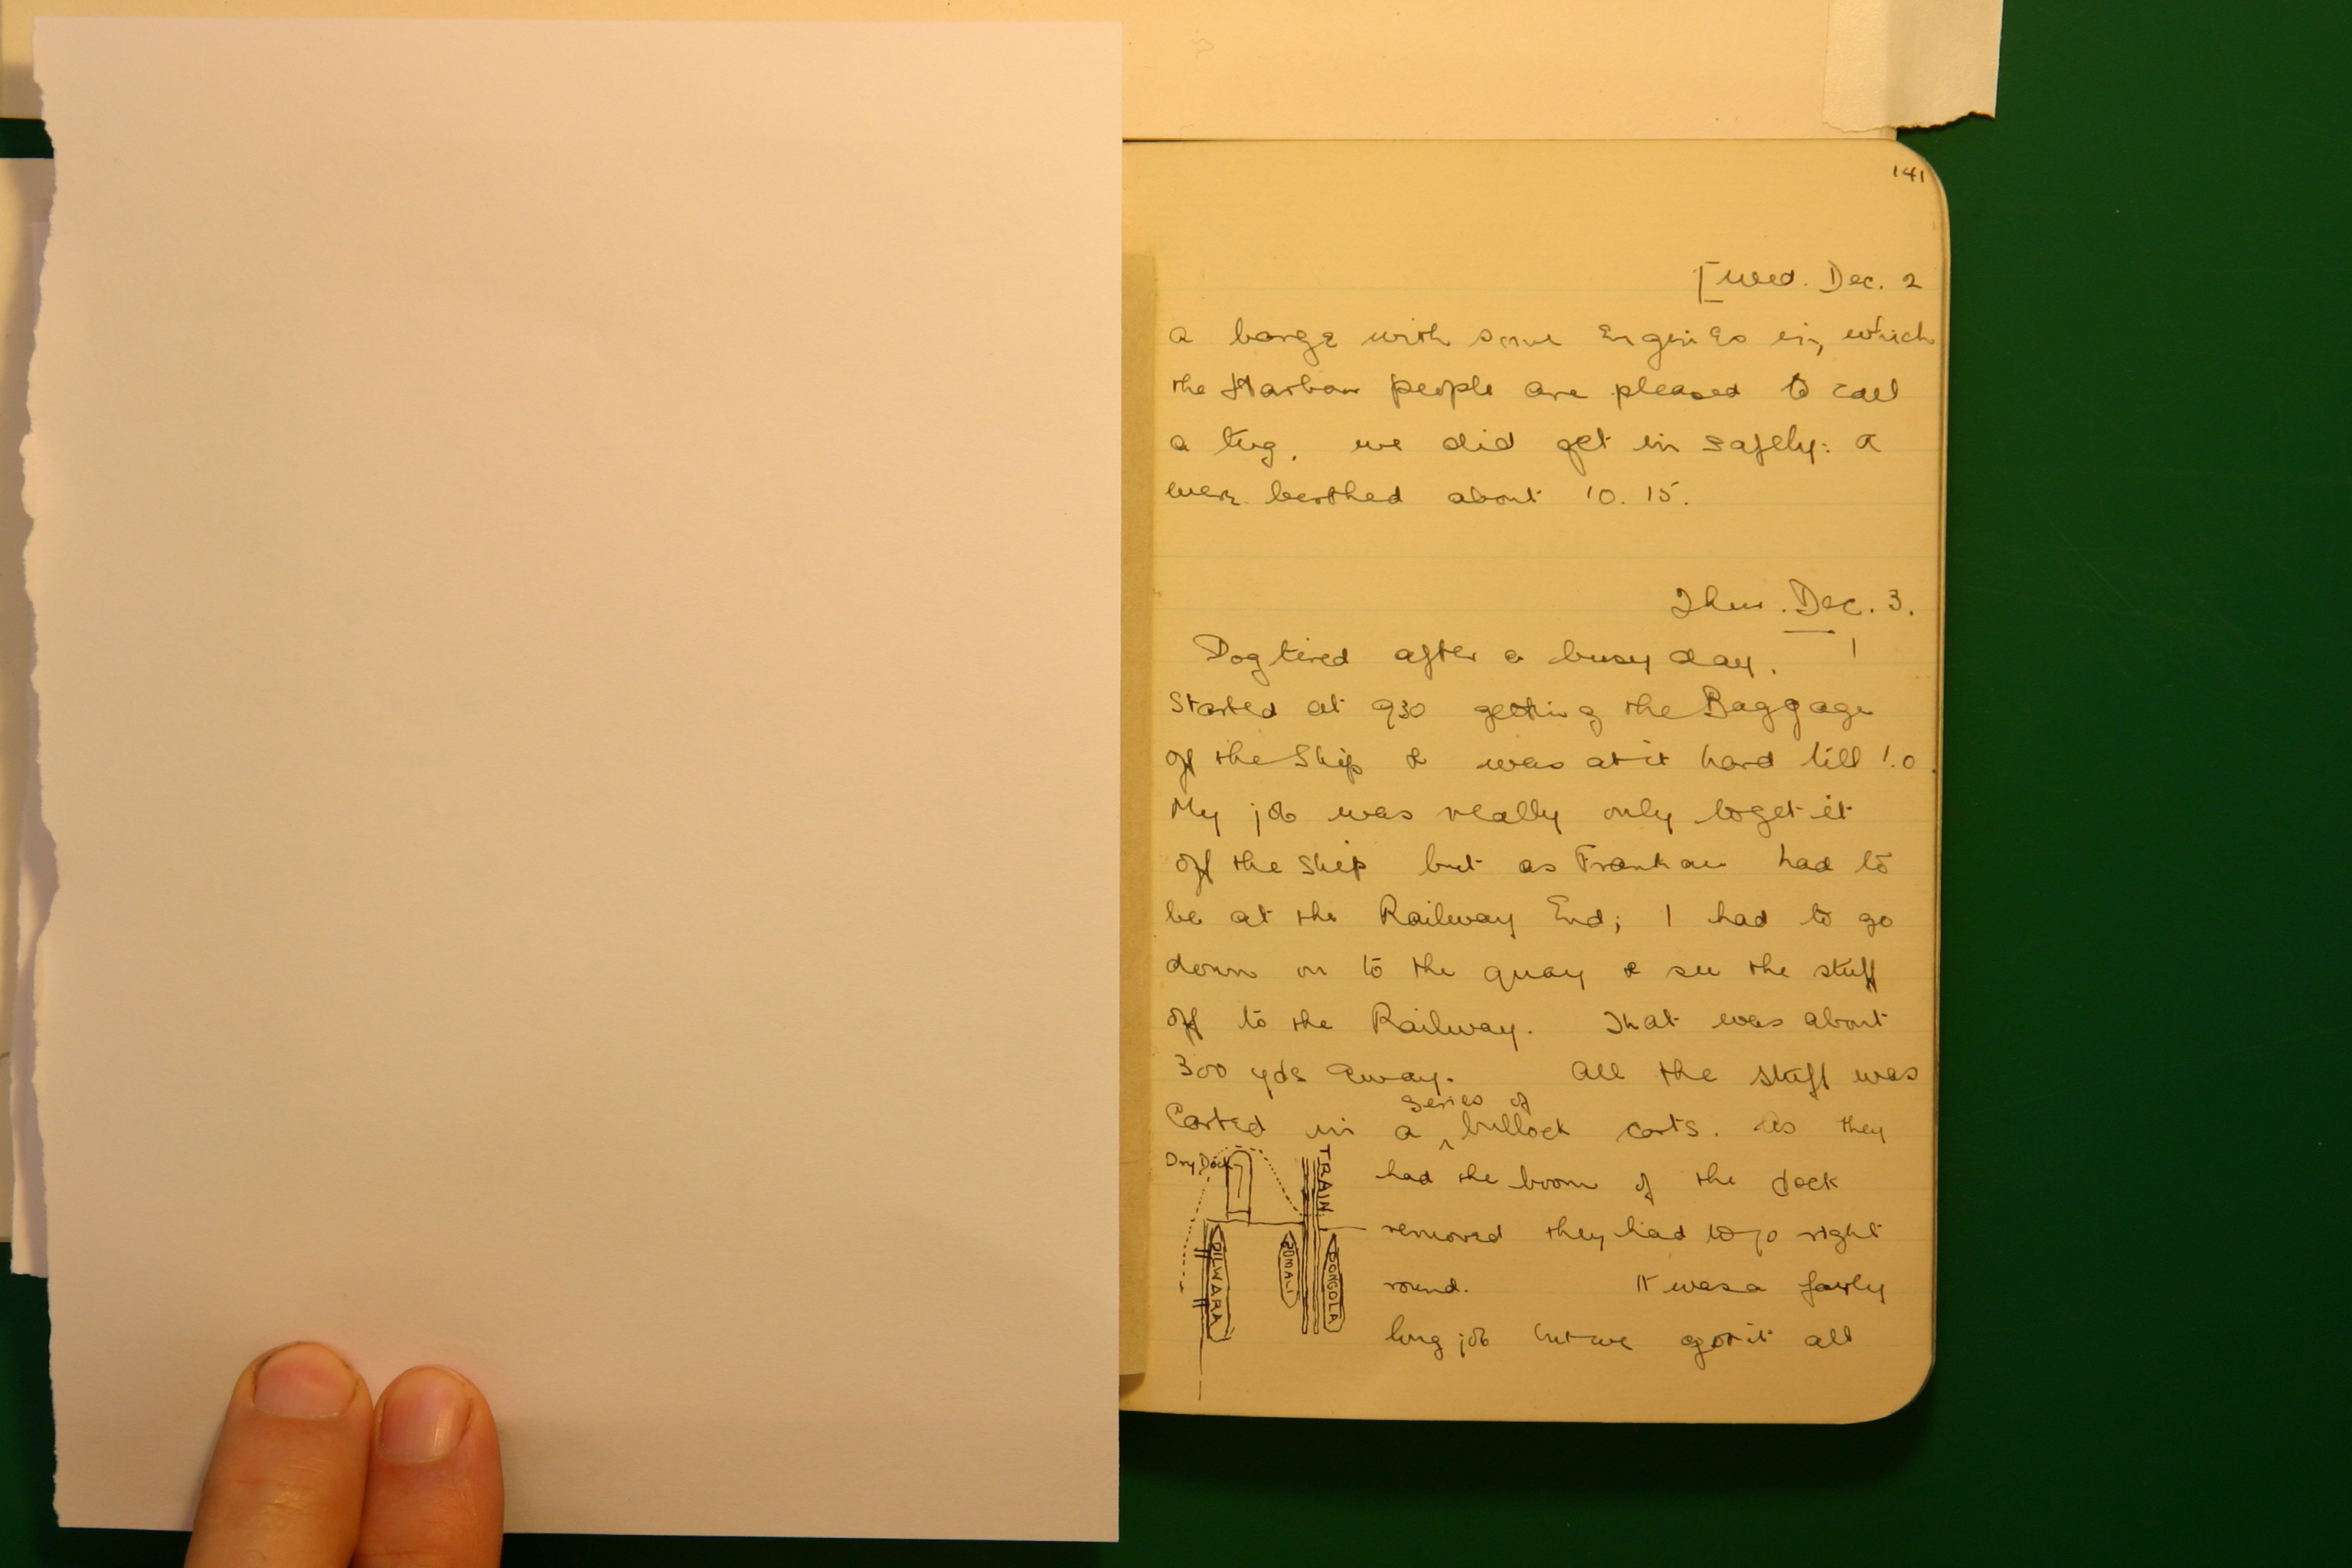 141
[Wed. Dec. 2
a barge with some Engines in, which
the Harbour people are pleased to call
a tug, we did get in safely: &
were berthed about 10.15.
Thur. Dec. 3.
Dog tired after a busy day. !
Started at 930 getting the Baggage
off the Ship & was at it hard till 1.0.
My job was really only to get it
off the Ship but as Frankau had to
be at the Railway End; I had to go
down on to the quay & see the stuff
off to the Railway. That was about
300 yds away. All the stuff was
series of
Carted in a ^ bullock carts. As they
Dry Dock
TRAIN
had the boom of the dock
removed they had to go right
DILWARA
SOMALI
DONGOLA
round. It was a fairly
long job but we got it all